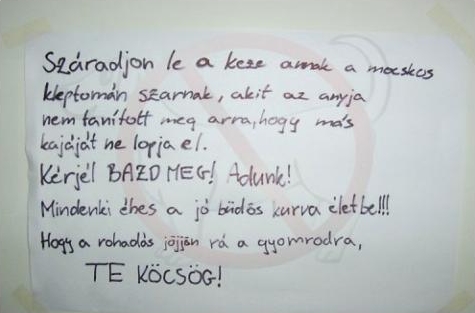 Száradjon le a keze annak a mocskos
kleptomán szarnak, akit az anyja
nem tanított meg arra, hogy más
kajáját ne lopja el.
Kérjél BAZD MEG! Adunk!
Mindenki éhes a jó büdös kurva életbe!!!
Hogy a rohadás jöjjön rá a gyomrodra,
TE KÖCSÖG!